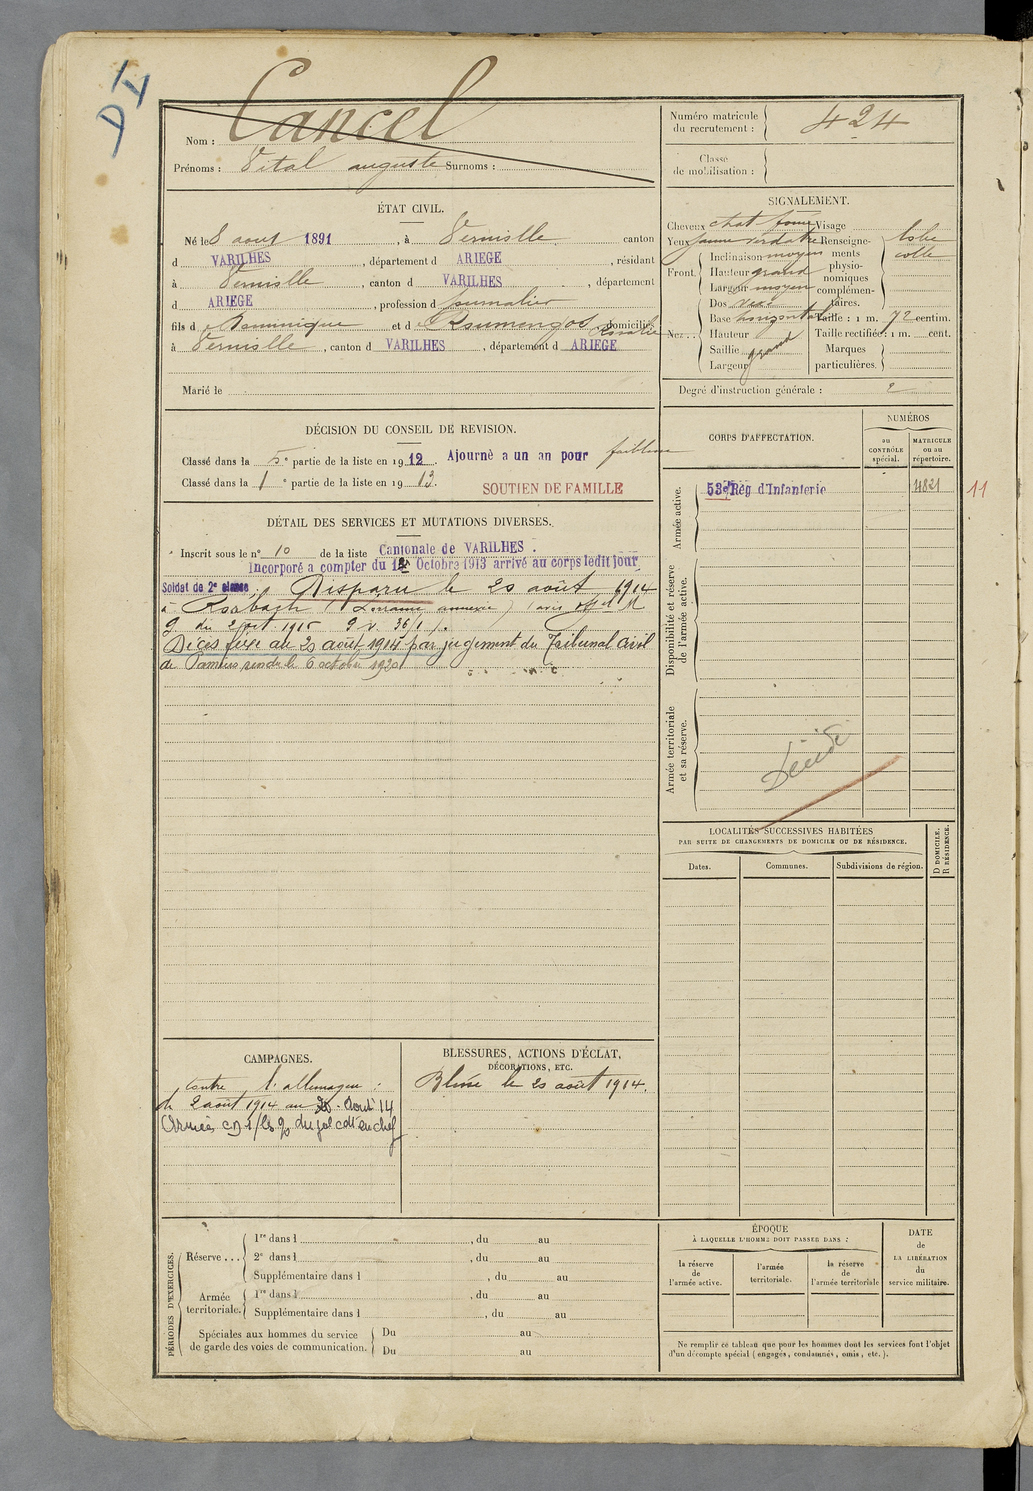 DI
Nom : Cancel
Prénoms : Vital auguste Surnoms :
Numéro matricule du recrutement : 424
Classe de mobilisation :
ÉTAT CIVIL.
Né le 8 aout 1891, à Verniolle canton
d VARILHES, département d ARIEGE, résidant
à Verniolle, canton d VARILHES, département
d ARIEGE, profession d journalier
fils d Dominique et d Rosalie domiciliés
à Verniolle, canton d VARILHES, département d ARIEGE
Marié le
SIGNALEMENT.
Cheveux chat foncé
Yeux jaune verdatre
Front. Inclinaison moyen
Hauteur grand
Largeur moyen
Nez. . Dos vexe
Base horizontal
Hauteur
Saillie grand
Largeur
Visage
Renseignements physionomiques complémentaires.
Taille : 1 m. 72 centim.
Taille rectifiée : 1 m. cent.
Marques particulières.
Degré d'instruction générale : 2
DÉCISION DU CONSEIL DE REVISION.
Classé dans la 5e partie de la liste en 1912. Ajourné a un an pour faiblesse
Classé dans la 1e partie de la liste en 1913.
SOUTIEN DE FAMILLE
CORPS D'AFFECTATION.
NUMÉROS
au CONTRÔLE spécial.
MATRICULE ou au répertoire.
Armée active.
53e Rég d'Infanterie 4821 11
Disponibilité et réserve de l'armée active.
Armée territoriale et sa réserve.
Décédé
DÉTAIL DES SERVICES ET MUTATIONS DIVERSES.
Inscrit sous le n° 10 de la liste Cantonale de VARILHES.
Incorporé a compter du 12 Octobre 1913 arrivé au corps ledit jour
Soldat de 2e classe Disparu le 20 août 1914
à Rorbach (Lorraine annexée) (avis officiel M
G. du 2 oct. 1915
Décès fixé au 20 août 1914 par jugement du Tribunal civil
de Pamiers rendu le 6 octobre 1920
LOCALITÉS SUCCESSIVES HABITÉES
PAR SUITE DE CHANGEMENTS DE DOMICILE OU DE RÉSIDENCE.
Dates.
Communes.
Subdivisions de région.
D DOMICILE.
R RÉSIDENCE.
CAMPAGNES.
Contre l'allemagne :
du 2 août 1914 au 20 Août 14
BLESSURES, ACTIONS D'ÉCLAT,
DÉCORATIONS, ETC.
Blessé le 20 août 1914.
PÉRIODES D'EXERCICES.
Réserve . . .
1re dans l , du au
2e dans l , du au
Supplémentaire dans l , du au
Armée territoriale.
1re dans l , du au
Supplémentaire dans l , du au
Spéciales aux hommes du service
de garde des voies de communication.
Du au
Du au
ÉPOQUE
À LAQUELLE L'HOMME DOIT PASSER DANS :
la réserve de l'armée active.
l'armée territoriale.
la réserve de l'armée territoriale
DATE de LA LIBÉRATION du service militaire.
Ne remplir ce tableau que pour les hommes dont les services font l'objet
d'un décompte spécial (engagés, condamnés, omis, etc.).